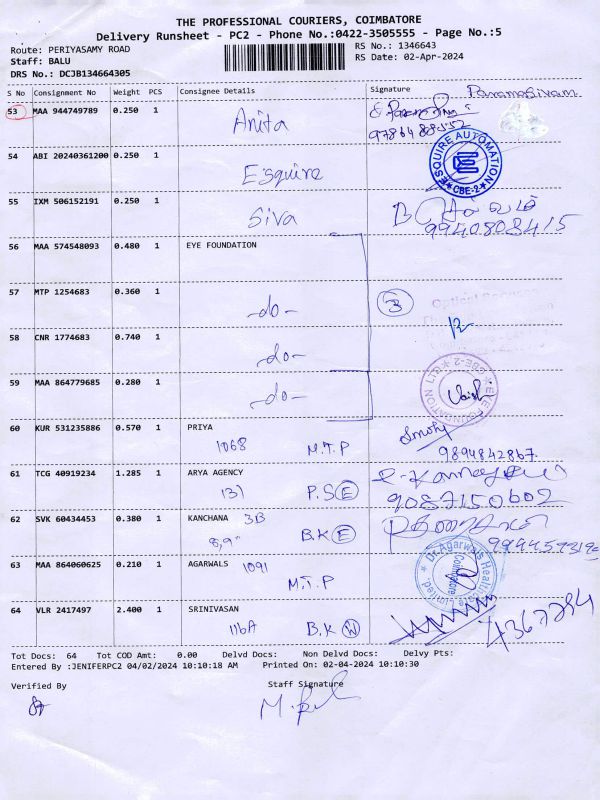 THE PROFESSIONAL COURIERS, COIMBATORE
Delivery Runsheet - PC2 - Phone No.:0422-3505555 - Page No.:5
Route: PERIYASAMY ROAD
Staff: BALU
DRS No.: DCJB134664305
RS No.: 1346643
RS Date: 02-Apr-2024
S No Consignment No Weight PCS Consignee Details Signature Paramasivam
53 MAA 944749789 0.250 1 Anita
54 ABI 20240361200 0.250 1 Esquire ESQUIRE AUTOMATION CBE-2
55 IXM 506152191 0.250 1 Siva
56 MAA 574548093 0.480 1 EYE FOUNDATION
57 MTP 1254683 0.360 1 -do- 3
58 CNR 1774683 0.740 1 -do-
59 MAA 864779685 0.280 1 -do- EYE FOUNDATION LTD CBE-2
60 KUR 531235886 0.570 1 PRIYA 1068 M.T.P 9894842867
61 TCG 40919234 1.285 1 ARYA AGENCY 131 P.S E 9087150602
62 SVK 60434453 0.380 1 KANCHANA 3B 8,9" B.K E
63 MAA 864060625 0.210 1 AGARWALS 1091 M.T.P Dr.Agarwals Health Care Limited. Coimbatore
64 VLR 2417497 2.400 1 SRINIVASAN 116A B.K W
Tot Docs: 64 Tot COD Amt: 0.00 Delvd Docs: Non Delvd Docs: Delvy Pts:
Entered By :JENIFERPC2 04/02/2024 10:10:18 AM Printed On: 02-04-2024 10:10:30
Verified By Staff Signature